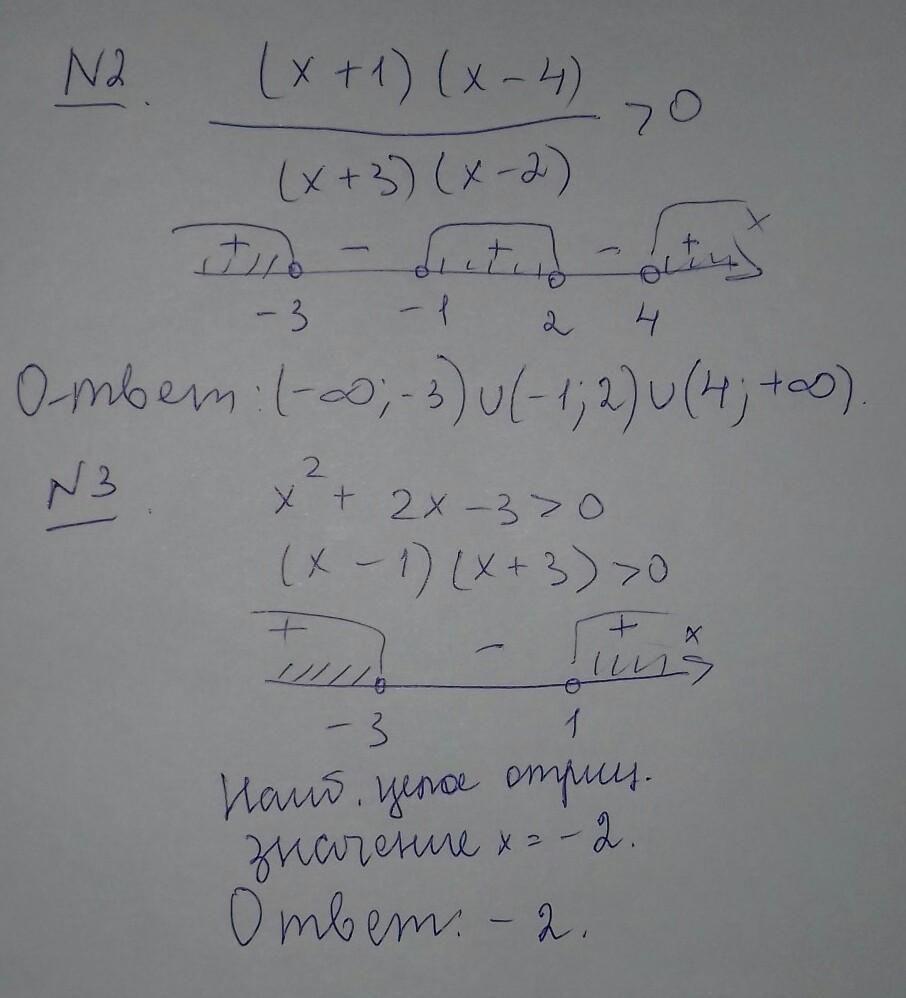 N2. (x+1)(x-4)
>0
(x+3)(x-2)
+ - + - + x
-3 -1 2 4
Ответ: (-∞;-3)∪(-1;2)∪(4;+∞).
N3. x²+ 2x -3>0
(x -1)(x+3)>0
+ - + x
-3 1
Наиб. целое отриц.
значение x=-2.
Ответ: -2.